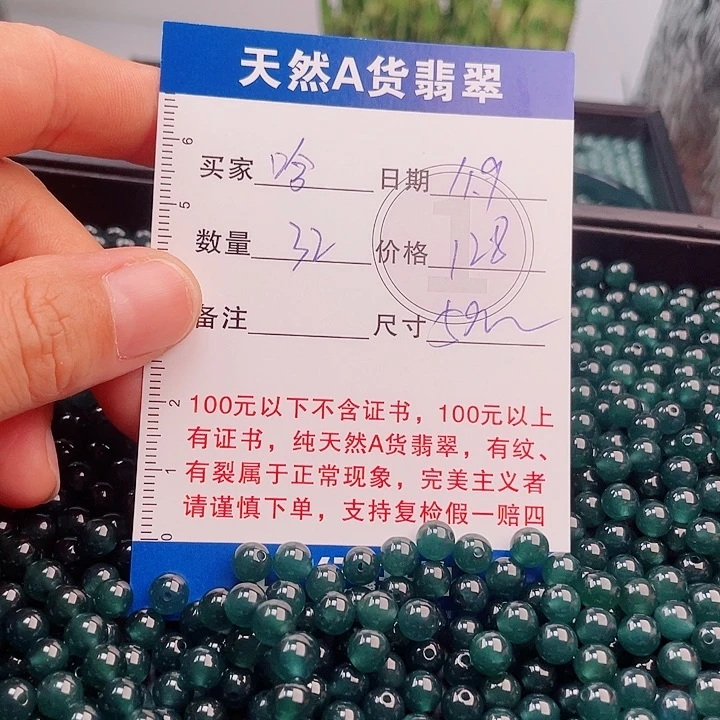 天然A货翡翠
买家 哈 日期 1.9
数量 32 价格 128
备注 尺寸
100元以下不含证书，100元以上
有证书，纯天然A货翡翠，有纹、
有裂属于正常现象，完美主义者
请谨慎下单，支持复检假一赔四
6
5
2
1
0